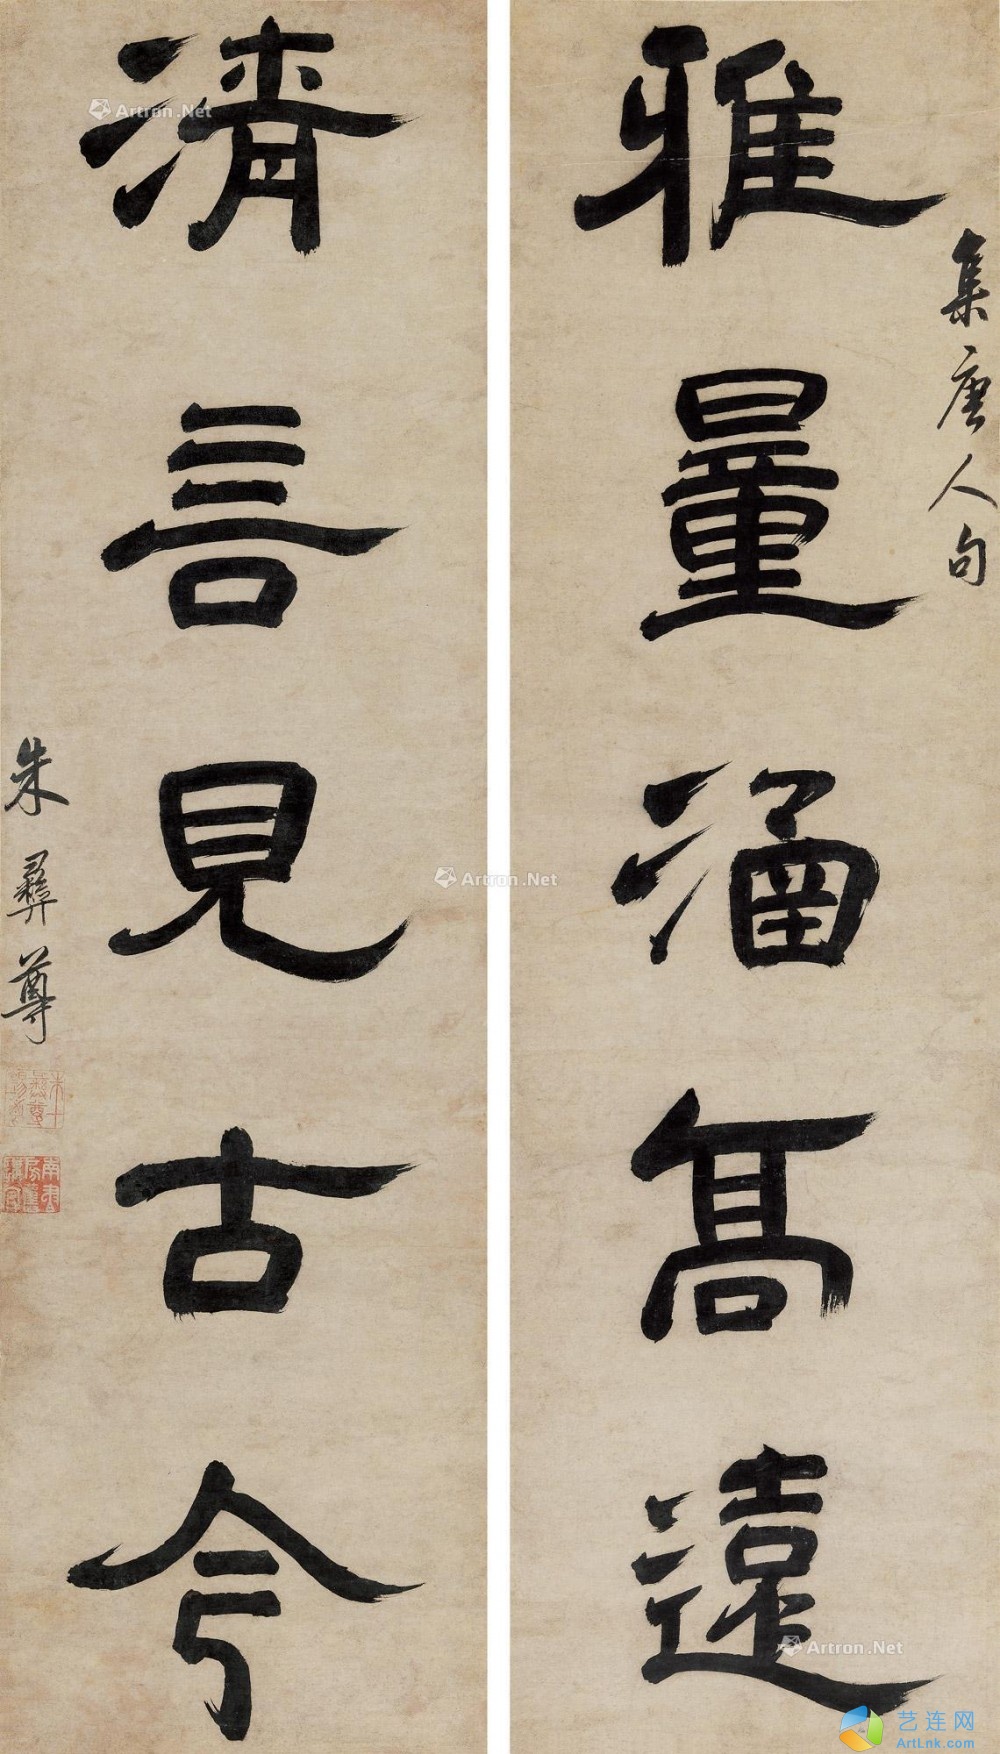 集唐人句
雅量涵高遠
清言見古今
朱彝尊
Artron.Net
Artron.Net
Artron.Net
艺连网
ArtLnk.com